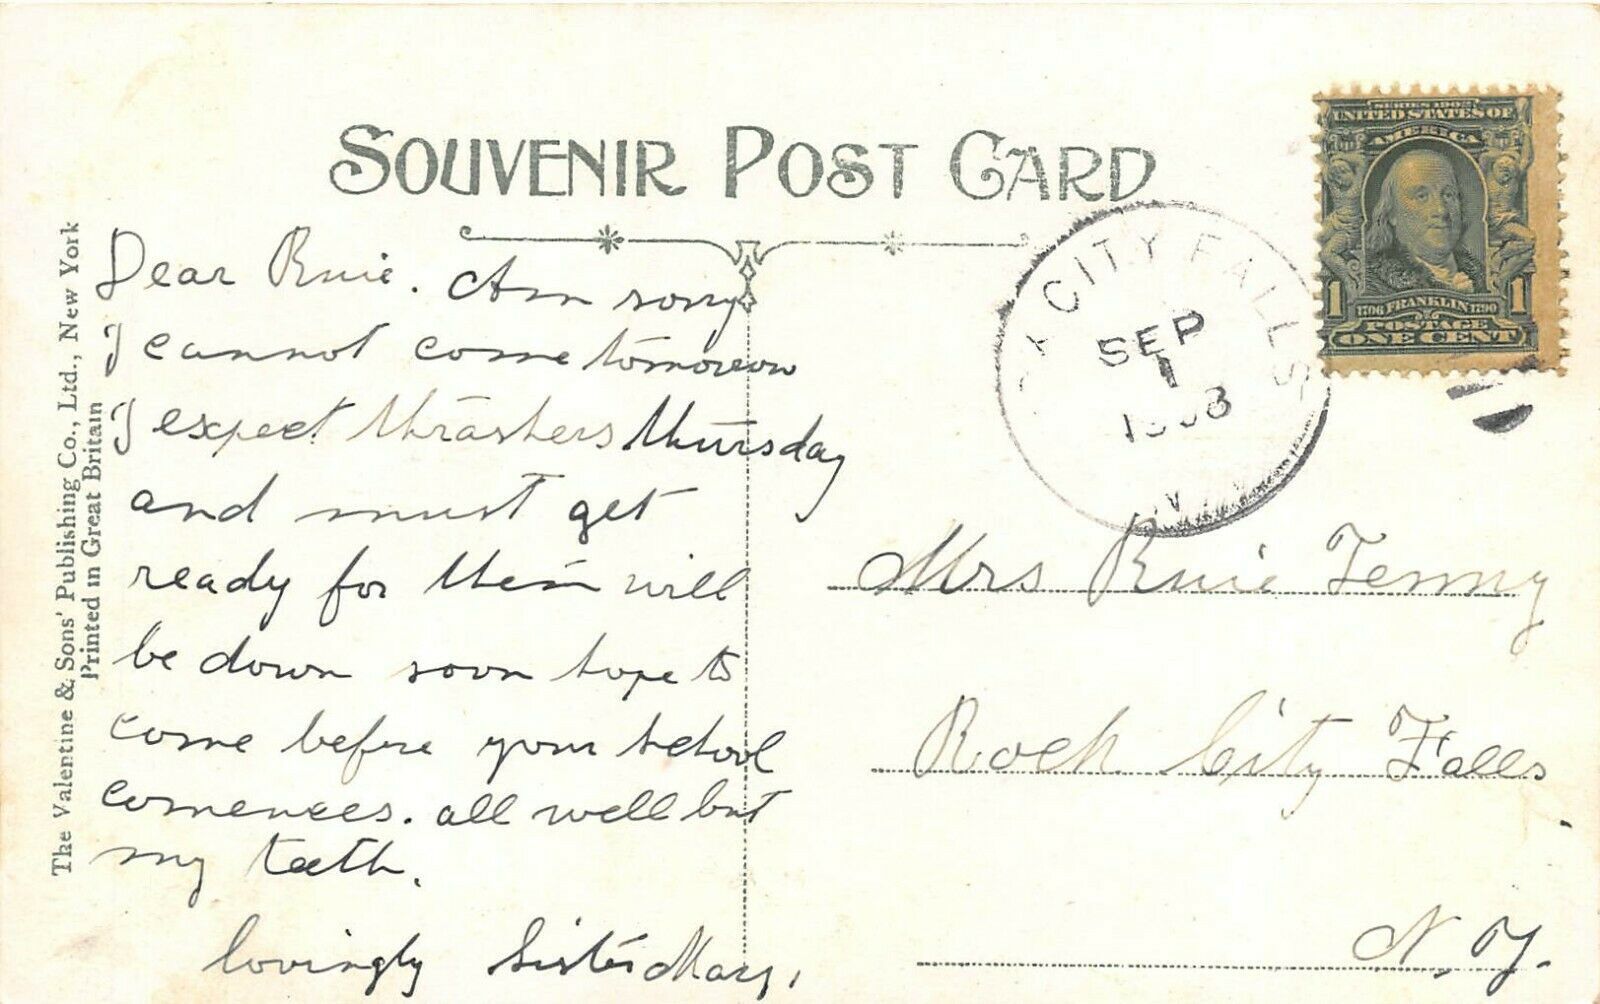 SOUVENIR POST CARD
The Valentine & Sons' Publishing Co., Ltd., New York
Printed in Great Britain
SERIES 1902
UNITED STATES OF
AMERICA
1 1706 FRANKLIN 1790 1
POSTAGE
ONE CENT
CITY FALLS
SEP
1
Dear Ruie. Am sorry
I cannot come tomorrow
I expect thrashers thursday
and must get
ready for them will
be down soon hope to
come before your school
comences. all well but
my teeth.
lovingly Sister Mary,
Mrs Ruie Tenny
Rock City Falls
N. Y.